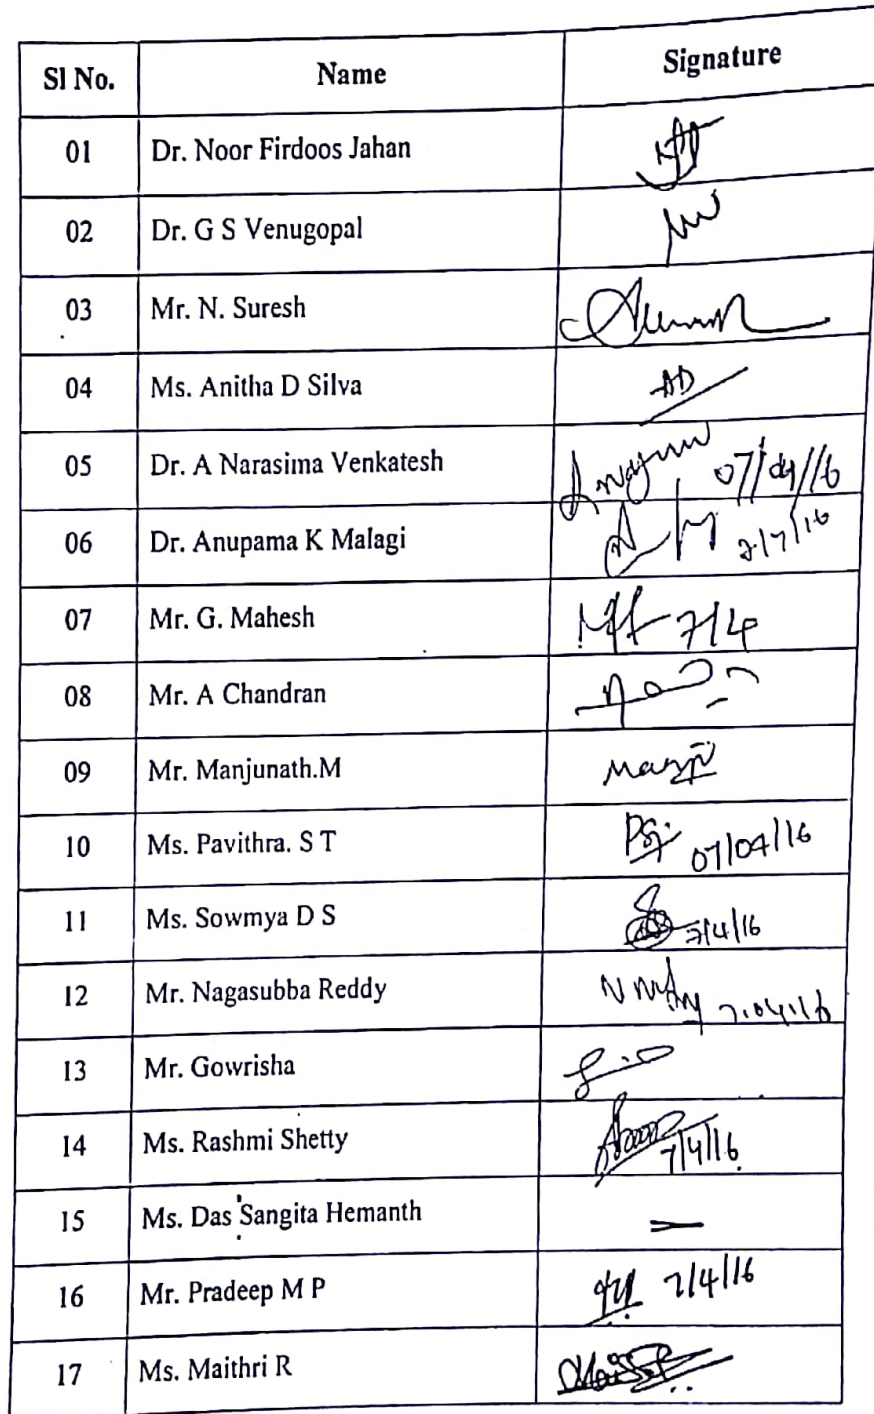 Sl No. Name Signature
01 Dr. Noor Firdoos Jahan
02 Dr. G S Venugopal
03 Mr. N. Suresh
04 Ms. Anitha D Silva AD
05 Dr. A Narasima Venkatesh 07/04/16
06 Dr. Anupama K Malagi
07 Mr. G. Mahesh 7/4
08 Mr. A Chandran
09 Mr. Manjunath.M
10 Ms. Pavithra. S T 07/04/16
11 Ms. Sowmya D S 7/4/16
12 Mr. Nagasubba Reddy 7.04.16
13 Mr. Gowrisha
14 Ms. Rashmi Shetty 7/4/16
15 Ms. Das Sangita Hemanth
16 Mr. Pradeep M P 7/4/16
17 Ms. Maithri R